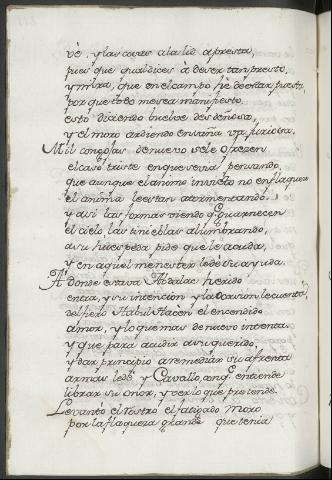 vè, y las cosas a la lid apresta,
pues que qual dices à de ser tan presto,
y mira, que en el campo hè de estar puesto
por que todo me sea manifiesto.
esto diciendo buelve desdeñosa,
y el moro ardiendo en saña va furiosa.
Mil congojas de nuevo se le ofrezen
el caso triste en que se via pensando,
que aunque el animo invicto no enflaquecen
el anima le estan atormentando.
y asi las formas viendo q.e guarnecen
el cielo, las tinieblas alumbrando,
a su huespeda pide que le acuda,
y en aquel menester le dè su ayuda.
A donde estava Abdalac herido
entra, y su intencion y la ocasion le cuenta,
del fiero Habul Hacen el encendido
amor, y lo que mas de nuevo intenta
y que para acudir a su querido,
y dar principio a remediar su afrenta
armas le dè y Cavallo, con q.e entiende
librar su onor, y ver lo que pretende.
Levantò el rostro el fatigado moro
por la flaqueza grande que tenia